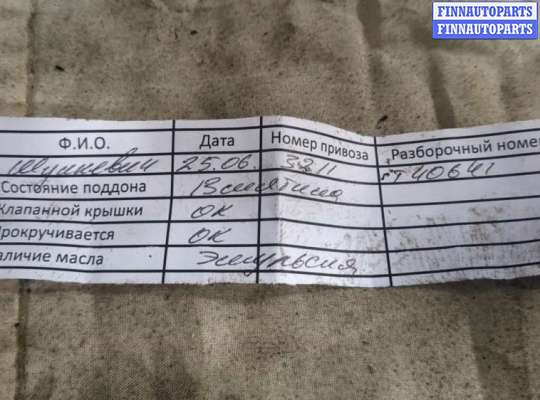 FINNAUTOPARTS
FINNAUTOPARTS
Ф.И.О. Дата Номер привоза Разборочный номе
25.06. 3211 ст40641
Состояние поддона Вмятина
Клапанной крышки ок
Прокручивается ок
аличие масла Эмульсия